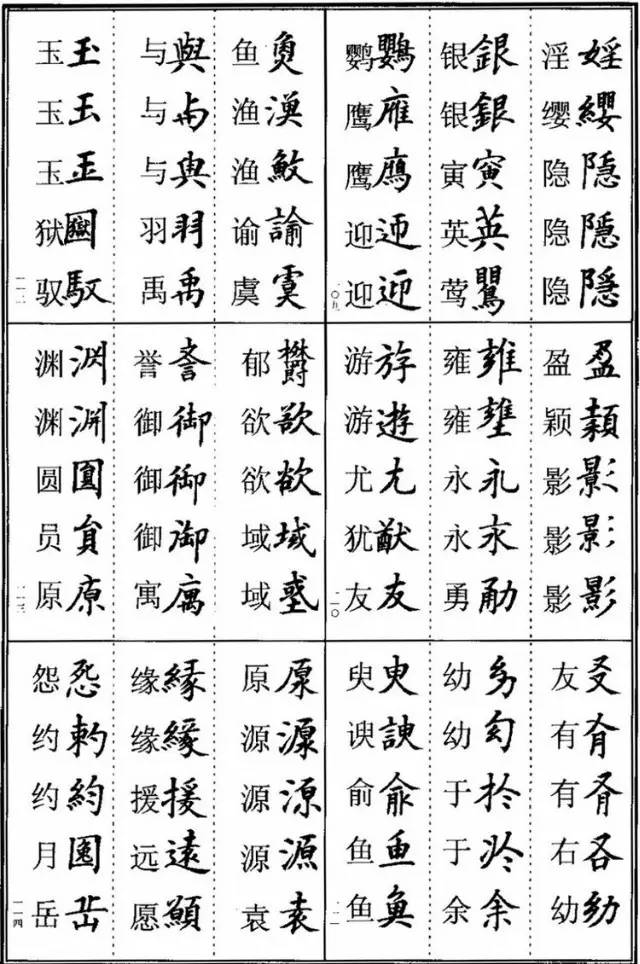 淫婬
缨纓
隐隐
隐隱
隐隐
银銀
银銀
寅寅
英英
莺鸎
鹦鸚
鹰䧹
鹰鷹
迎迊
迎迎
一〇九
盈盈
颖頴
影影
影影
影影
雍雍
雍壅
永永
永永
勇勈
游斿
游遊
尤尤
犹猷
友友
一一〇
友㕛
有有
有有
右右
幼幼
幼㓜
幼幻
于扵
于於
余余
臾臾
谀諛
俞兪
鱼魚
鱼魚
一一一
鱼魚
渔漁
渔䱷
谕諭
虞虞
与與
与与
与與
羽羽
禹禹
玉玉
玉玉
玉玉
狱
驭馭
一一二
郁欝
欲欲
欲欲
域域
域
誉誉
御御
御御
御御
寓庽
渊渕
渊渊
圆圓
员負
原原
一一三
原厡
源源
源源
源源
袁袁
缘緣
缘緣
援援
远遠
愿願
怨怨
约
约約
月囝
岳岳
一一四